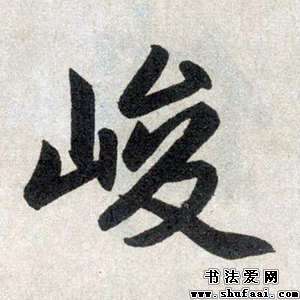 峻
书法爱网
www.shufaai.com